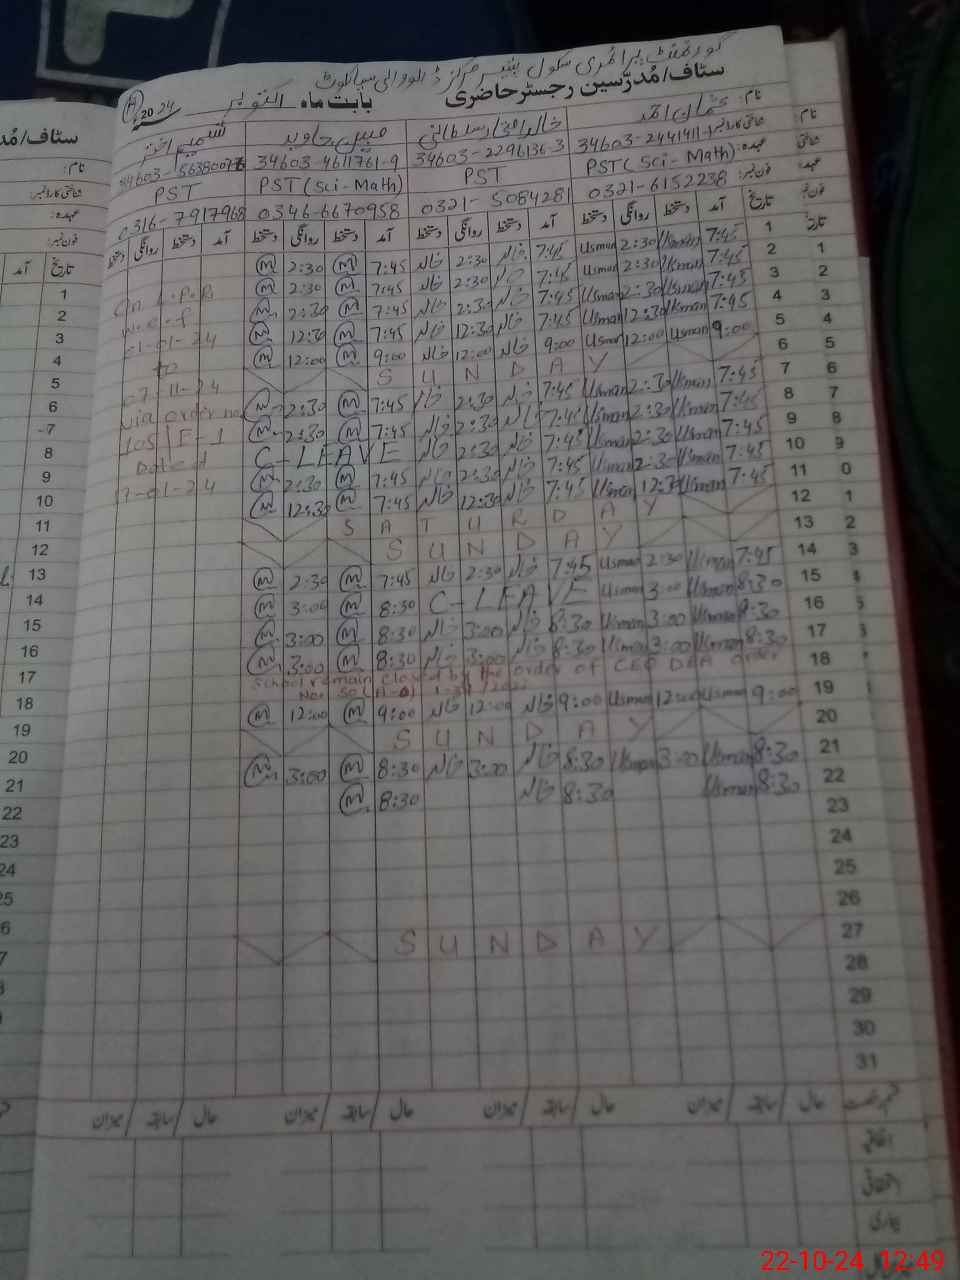 گورنمنٹ پرائمری سکول
سٹاف/مُدرّسین رجسٹر حاضری بابت ماہ اکتوبر 2024
نام: عثمان احمد خالد میبن جاوید شمیم اختر
شناختی کارڈ نمبر: 34603-2296136-3 34603-4611761-9
عہدہ: PST (Sci-Math) PST PST (Sci-Math) PST
فون نمبر: 0321-6152238 0321-5084281 0346-6670958 0316-7917968
تاریخ آمد دستخط روانگی دستخط آمد دستخط روانگی دستخط آمد دستخط روانگی دستخط آمد دستخط روانگی دستخط
1 7:45 Usman 2:30 Usman 7:45 خالد 2:30 خالد 7:45 M 2:30 M
2 7:45 Usman 2:30 Usman 7:45 خالد 2:30 خالد 7:45 M 2:30 M
3 7:45 Usman 2:30 Usman 7:45 خالد 2:30 خالد 7:45 M 2:30 M
4 7:45 Usman 12:30 Usman 7:45 خالد 12:30 خالد 7:45 M 12:30 M
5 9:00 Usman 12:00 Usman 9:00 خالد 12:00 خالد 9:00 M 12:00 M
6 SUNDAY
7 7:45 Usman 2:30 Usman 7:45 خالد 2:30 خالد 7:45 M 2:30 M
8 7:45 Usman 2:30 Usman 7:45 خالد 2:30 خالد 7:45 M 2:30 M
9 7:45 Usman 2:30 Usman 7:45 خالد 2:30 خالد C-LEAVE
10 7:45 Usman 2:30 Usman 7:45 خالد 2:30 خالد 7:45 M 2:30 M
11 7:45 Usman 12:30 Usman 7:45 خالد 12:30 خالد 7:45 M 12:30 M
12 SATURDAY
13 SUNDAY
14 7:45 Usman 2:30 Usman 7:45 خالد 2:30 خالد 7:45 M 2:30 M
15 8:30 Usman 3:00 Usman C-LEAVE 8:30 M 3:00 M
16 8:30 Usman 3:00 Usman 8:30 خالد 3:00 خالد 8:30 M 3:00 M
17 8:30 Usman 3:00 Usman 8:30 خالد 3:00 خالد 8:30 M 3:00 M
18 School remain closed by the order of CEO DEA order
No. SO (A-
19 9:00 Usman 12:00 Usman 9:00 خالد 12:00 خالد 9:00 M 12:00 M
20 SUNDAY
21 8:30 Usman 3:00 Usman 8:30 خالد 3:00 خالد 8:30 M 3:00 M
22 8:30 Usman 8:30 خالد 8:30 M
23
24
25
26
27 SUNDAY
28
29
30
31
On L.P.R
w.e.f
01-01-24
to
07-11-24
via order no
105/E-1
Dated
17-01-24
قسم رخصت حال سابقہ میزان حال سابقہ میزان حال سابقہ میزان حال سابقہ میزان
اتفاقیہ
استحقاقی
بیماری
سٹاف/مُد
نام:
شناختی کارڈ نمبر:
عہدہ:
فون نمبر:
تاریخ آمد
1
2
3
4
5
6
7
8
9
10
11
12
13
14
15
16
17
18
19
20
21
22
23
24
25
22-10-24 12:49